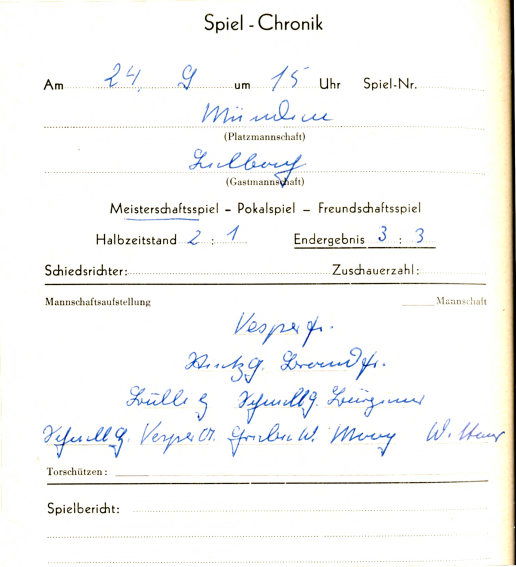 Spiel - Chronik
Am 24. 9 um 15 Uhr Spiel-Nr.
Münden
(Platzmannschaft)
(Gastmannschaft)
Meisterschaftsspiel – Pokalspiel – Freundschaftsspiel
Halbzeitstand 2 : 1 Endergebnis 3 : 3
Schiedsrichter: Zuschauerzahl:
Mannschaftsaufstellung Mannschaft
Vesper fr.
Brand fr.
Schnell g.
Schnell Vesper W.
Torschützen:
Spielbericht: